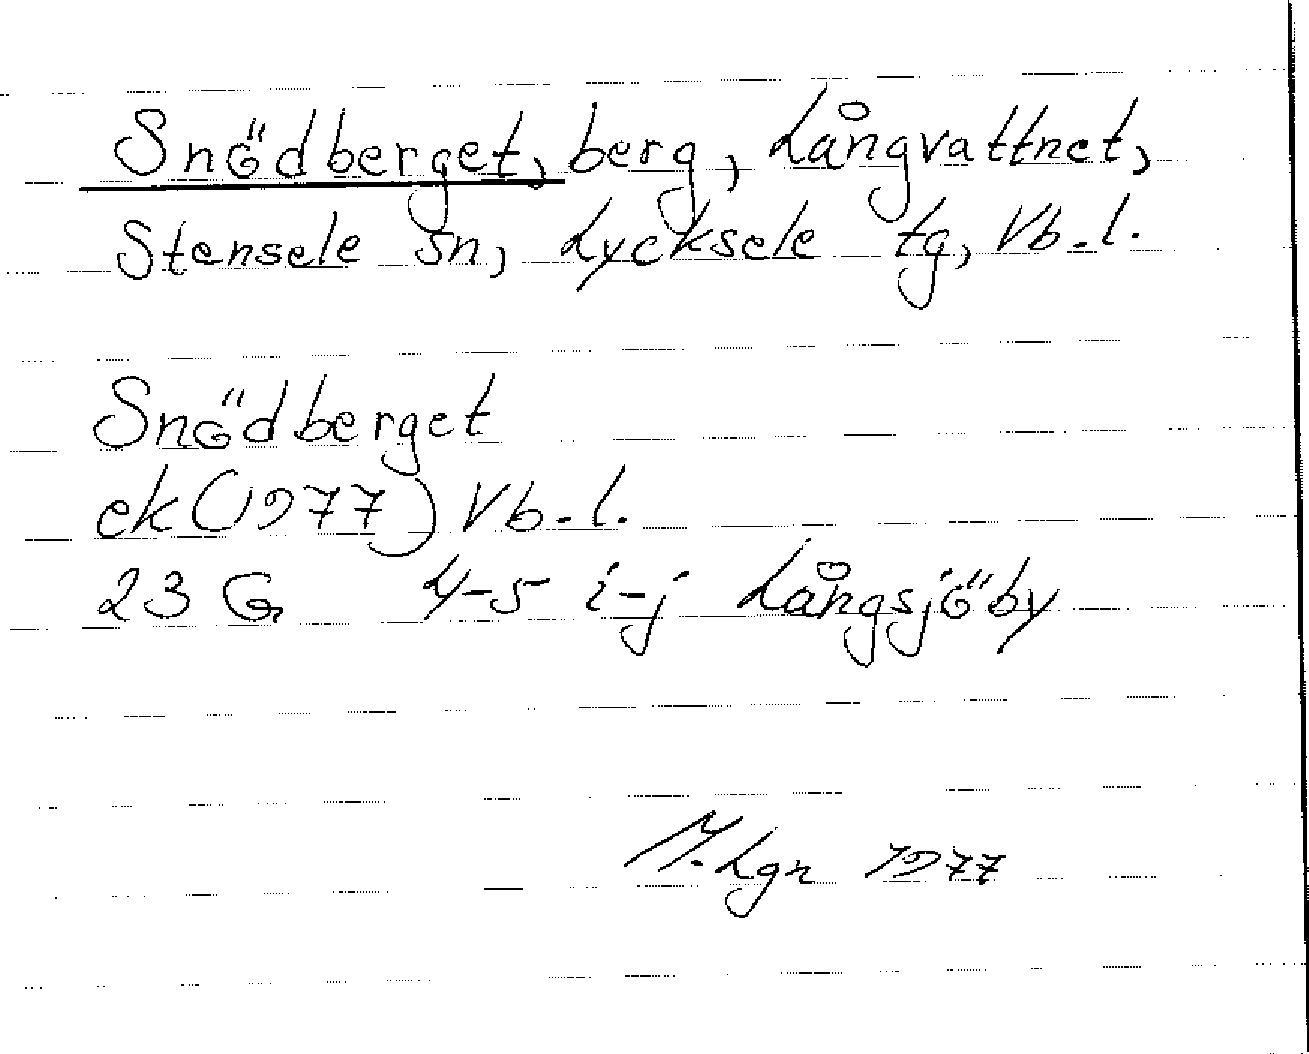 Snödberget, berg, Långvattnet,
Stensele sn, Lycksele tg, Vb.l.
Snödberget
ek(1977) Vb.l.
23 G 4-5 i-j Långsjöby
M.Lgn 1977